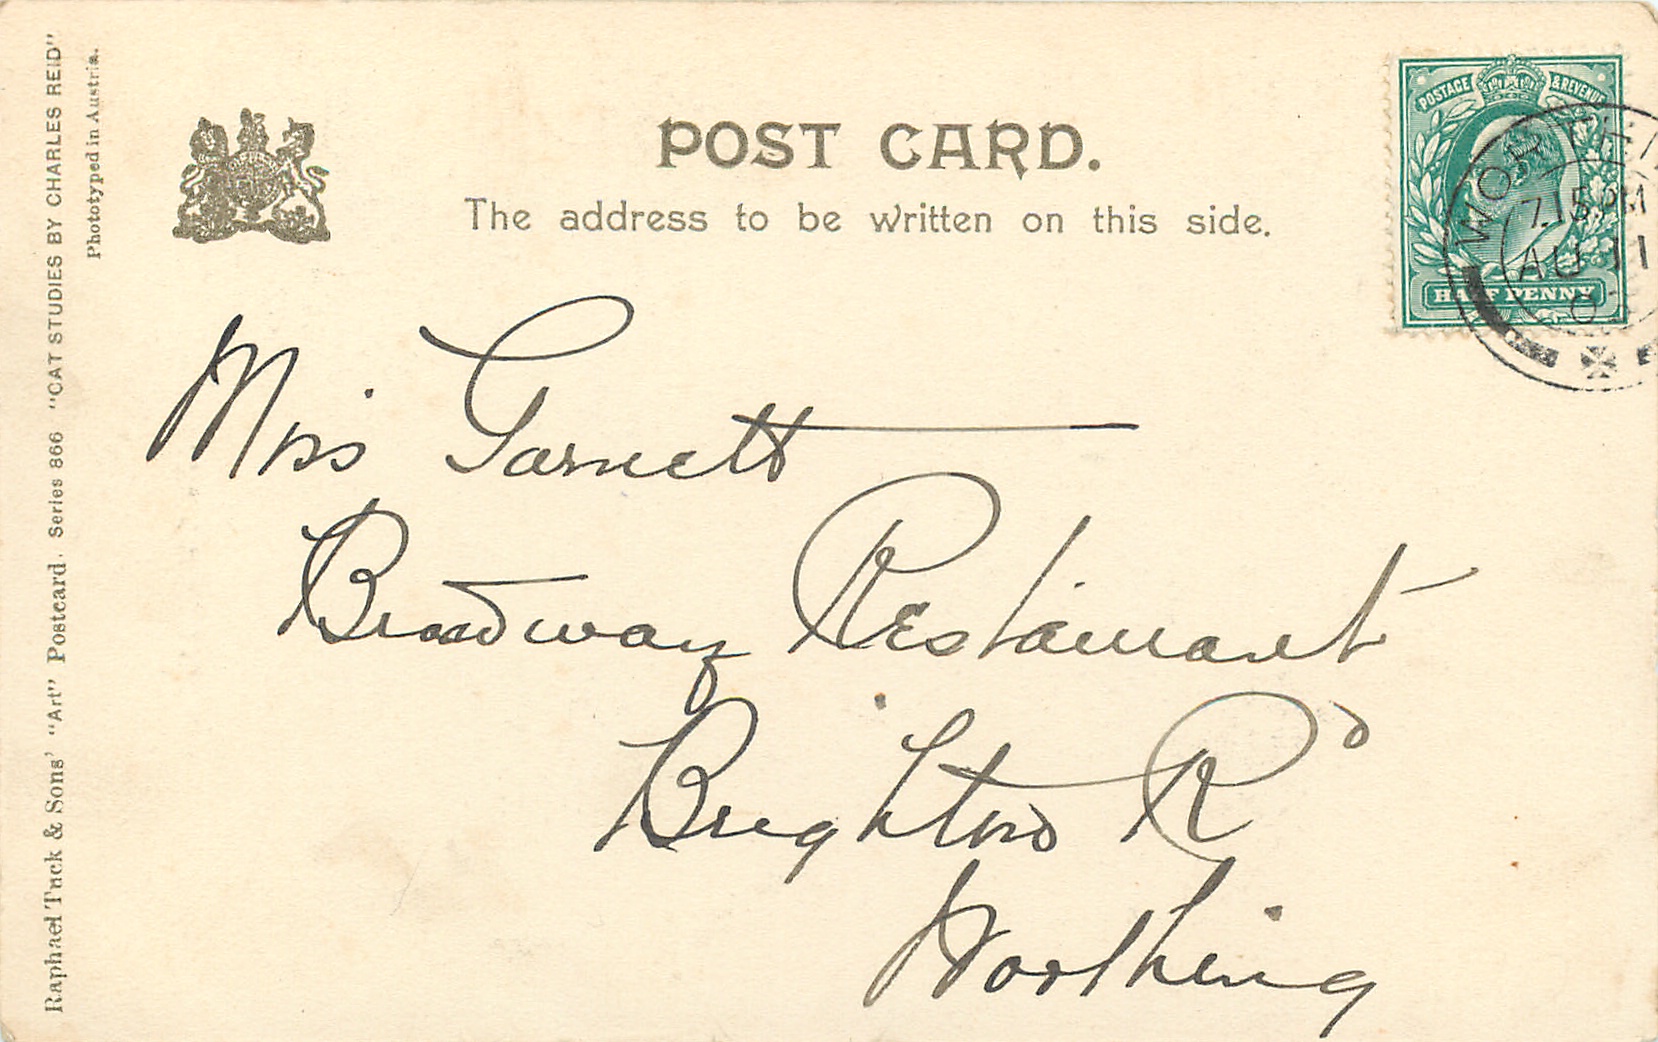 POST CARD.
The address to be written on this side.
POSTAGE & REVENUE
HALF PENNY
7.15PM
AU 11
Miss Garnett
Broadway Restaurant
Brighton Rd
Worthing
Raphael Tuck & Sons' "Art" Postcard. Series 866 "CAT STUDIES BY CHARLES REID"
Phototyped in Austria.